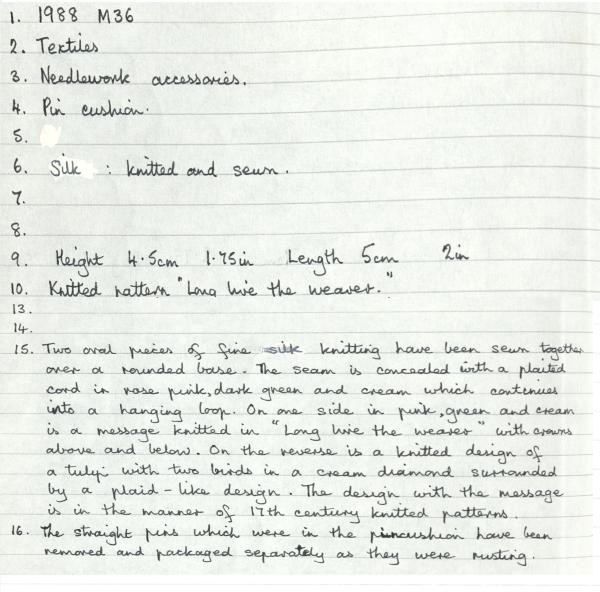 1. 1988 M36
2. Textiles
3. Needlework accessories.
4. Pin cushion.
5.
6. Silk : knitted and sewn.
7.
8.
9. Height 4.5cm 1.75in Length 5cm 2in
10. Knitted pattern "Long live the weaver."
13.
14.
15. Two oval pieces of fine silk knitting have been sewn together
over a rounded base. The seam is concealed with a plaited
cord in rose pink, dark green and cream which continues
into a hanging loop. On one side in pink, green and cream
is a message knitted in "Long live the wearer" with crowns
above and below. On the reverse is a knitted design of
a tulip with two birds in a cream diamond surrounded
by a plaid-like design. The design with the message
is in the manner of 17th century knitted patterns.
16. The straight pins which were in the pincushion have been
removed and packaged separately as they were rusting.